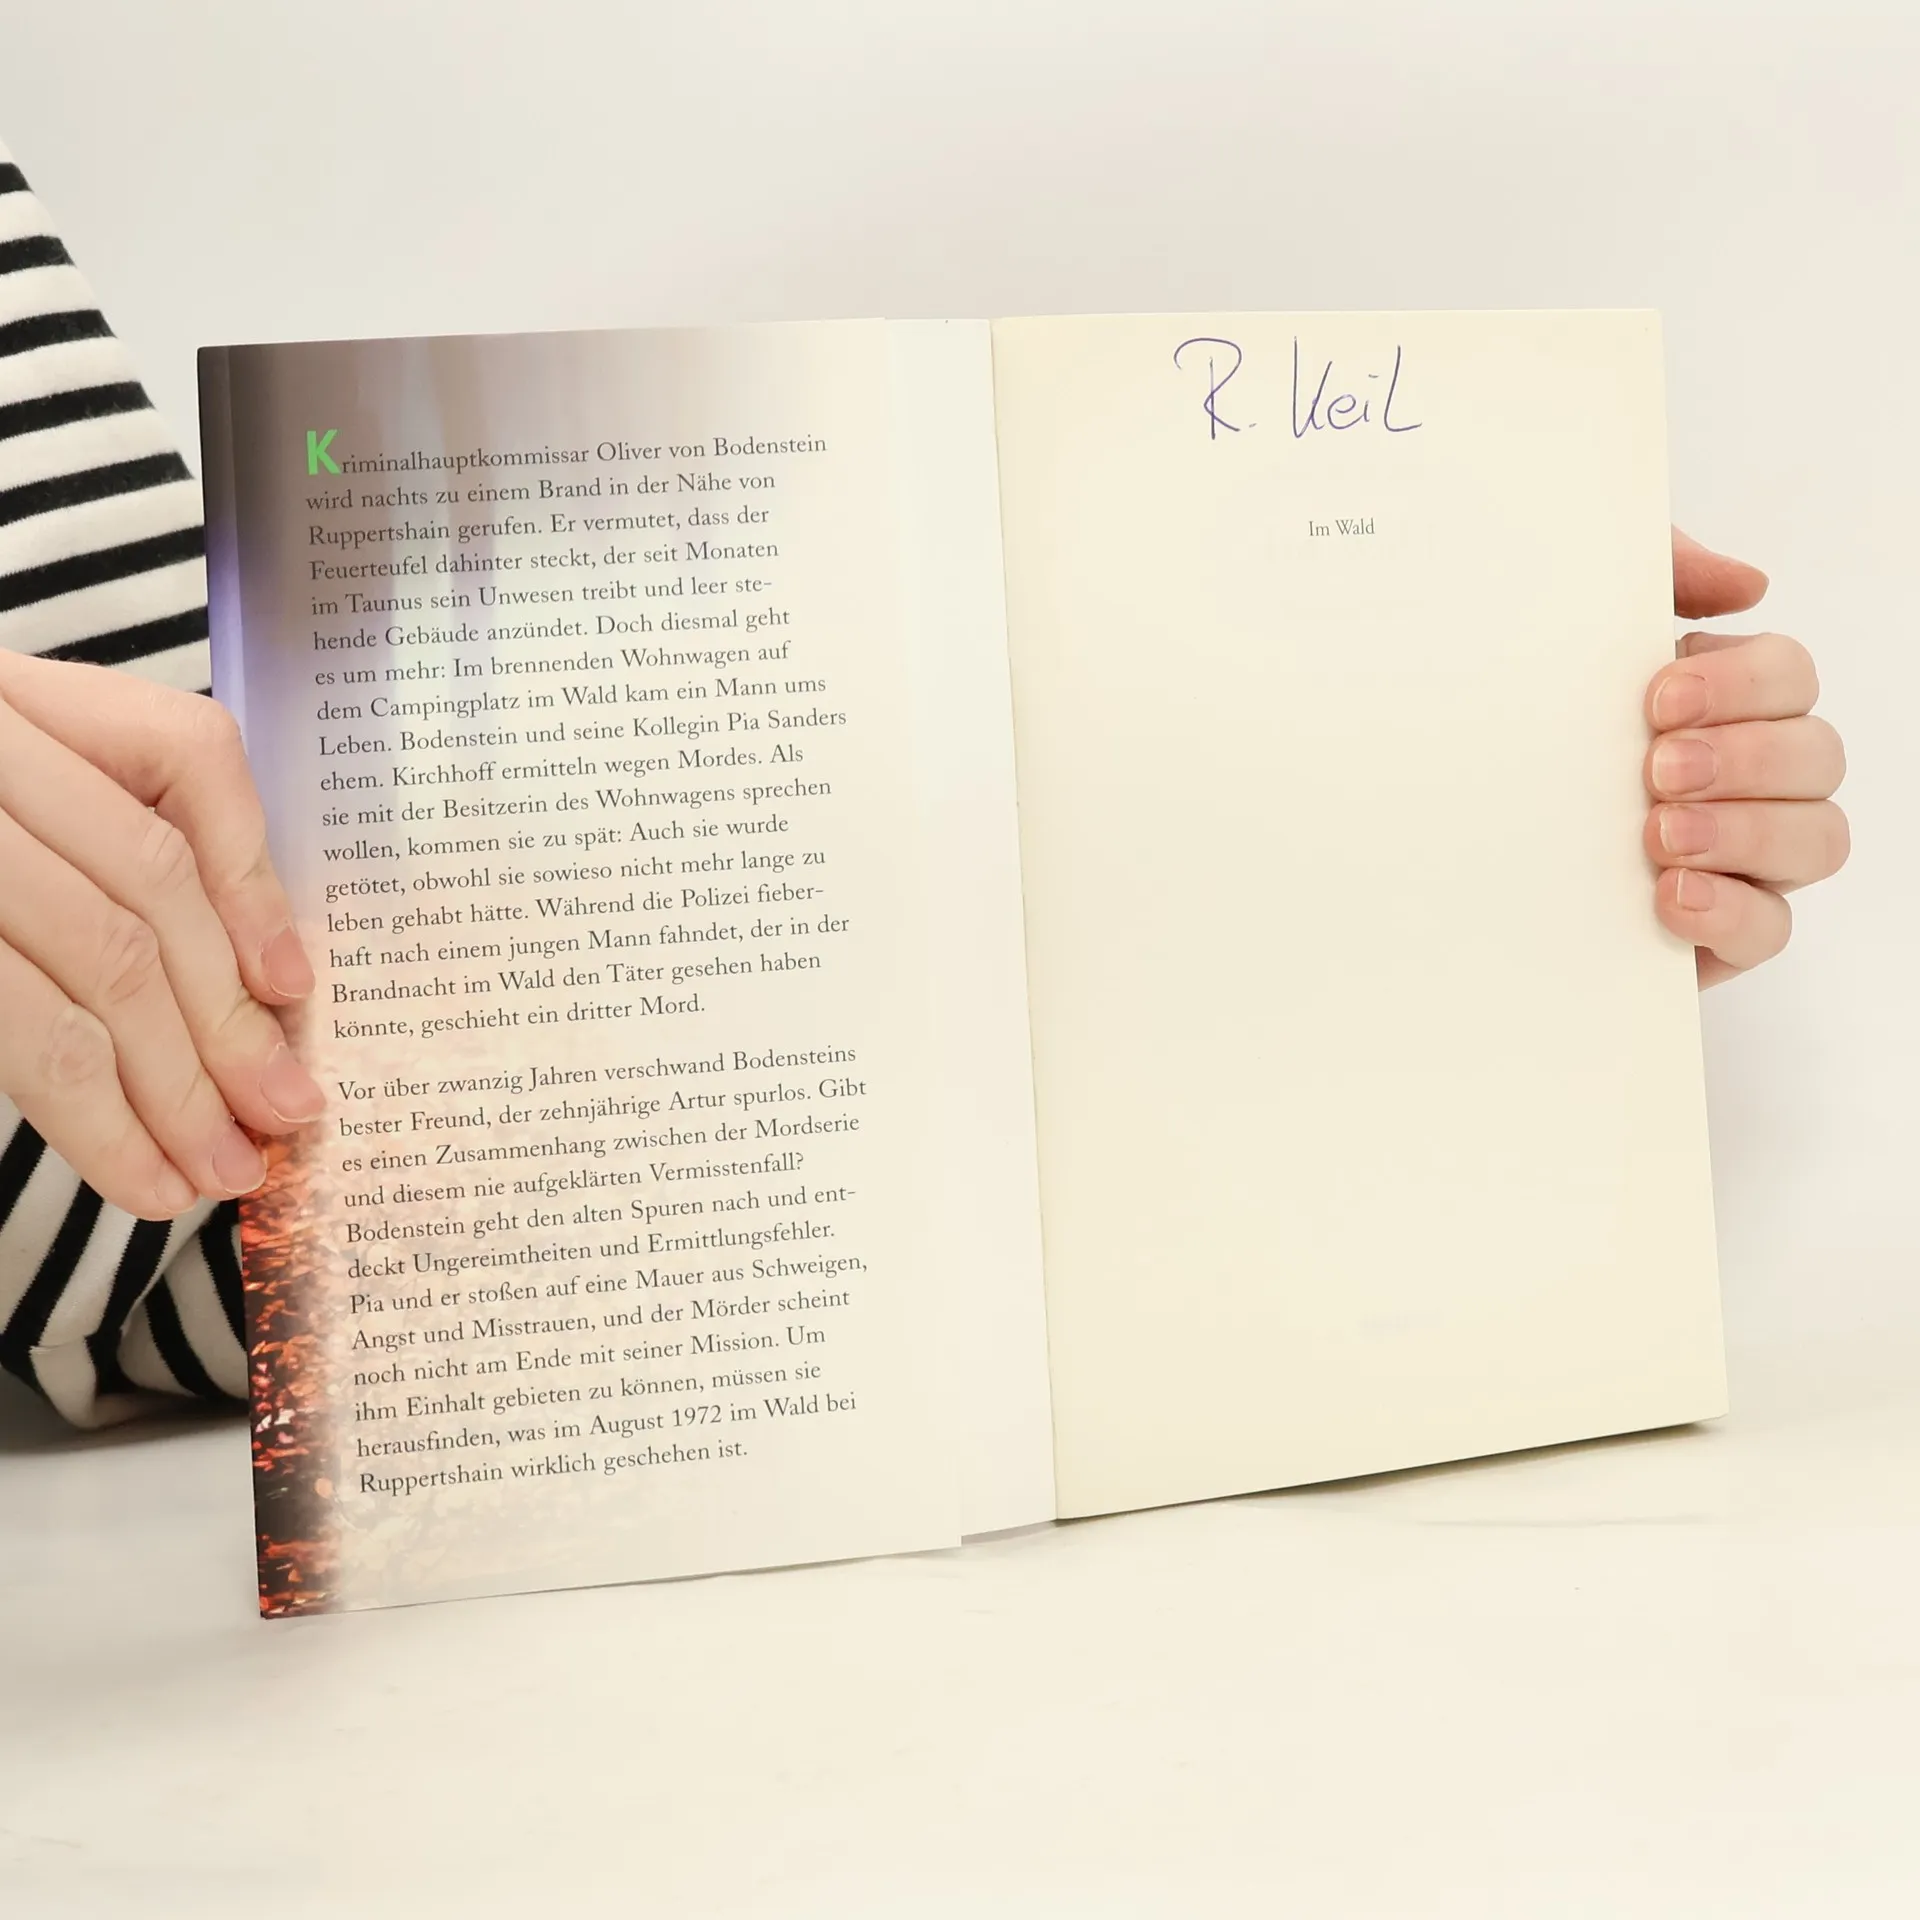 Kriminalhauptkommissar Oliver von Bodenstein
wird nachts zu einem Brand in der Nähe von
Ruppertshain gerufen. Er vermutet, dass der
Feuerteufel dahinter steckt, der seit Monaten
im Taunus sein Unwesen treibt und leer ste-
hende Gebäude anzündet. Doch diesmal geht
es um mehr: Im brennenden Wohnwagen auf
dem Campingplatz im Wald kam ein Mann ums
Leben. Bodenstein und seine Kollegin Pia Sanders
ehem. Kirchhoff ermitteln wegen Mordes. Als
sie mit der Besitzerin des Wohnwagens sprechen
wollen, kommen sie zu spät: Auch sie wurde
getötet, obwohl sie sowieso nicht mehr lange zu
leben gehabt hätte. Während die Polizei fieber-
haft nach einem jungen Mann fahndet, der in der
Brandnacht im Wald den Täter gesehen haben
könnte, geschieht ein dritter Mord.
Vor über zwanzig Jahren verschwand Bodensteins
bester Freund, der zehnjährige Artur spurlos. Gibt
es einen Zusammenhang zwischen der Mordserie
und diesem nie aufgeklärten Vermisstenfall?
Bodenstein geht den alten Spuren nach und ent-
deckt Ungereimtheiten und Ermittlungsfehler.
Pia und er stoßen auf eine Mauer aus Schweigen,
Angst und Misstrauen, und der Mörder scheint
noch nicht am Ende mit seiner Mission. Um
ihm Einhalt gebieten zu können, müssen sie
herausfinden, was im August 1972 im Wald bei
Ruppertshain wirklich geschehen ist.
R. Keil
Im Wald